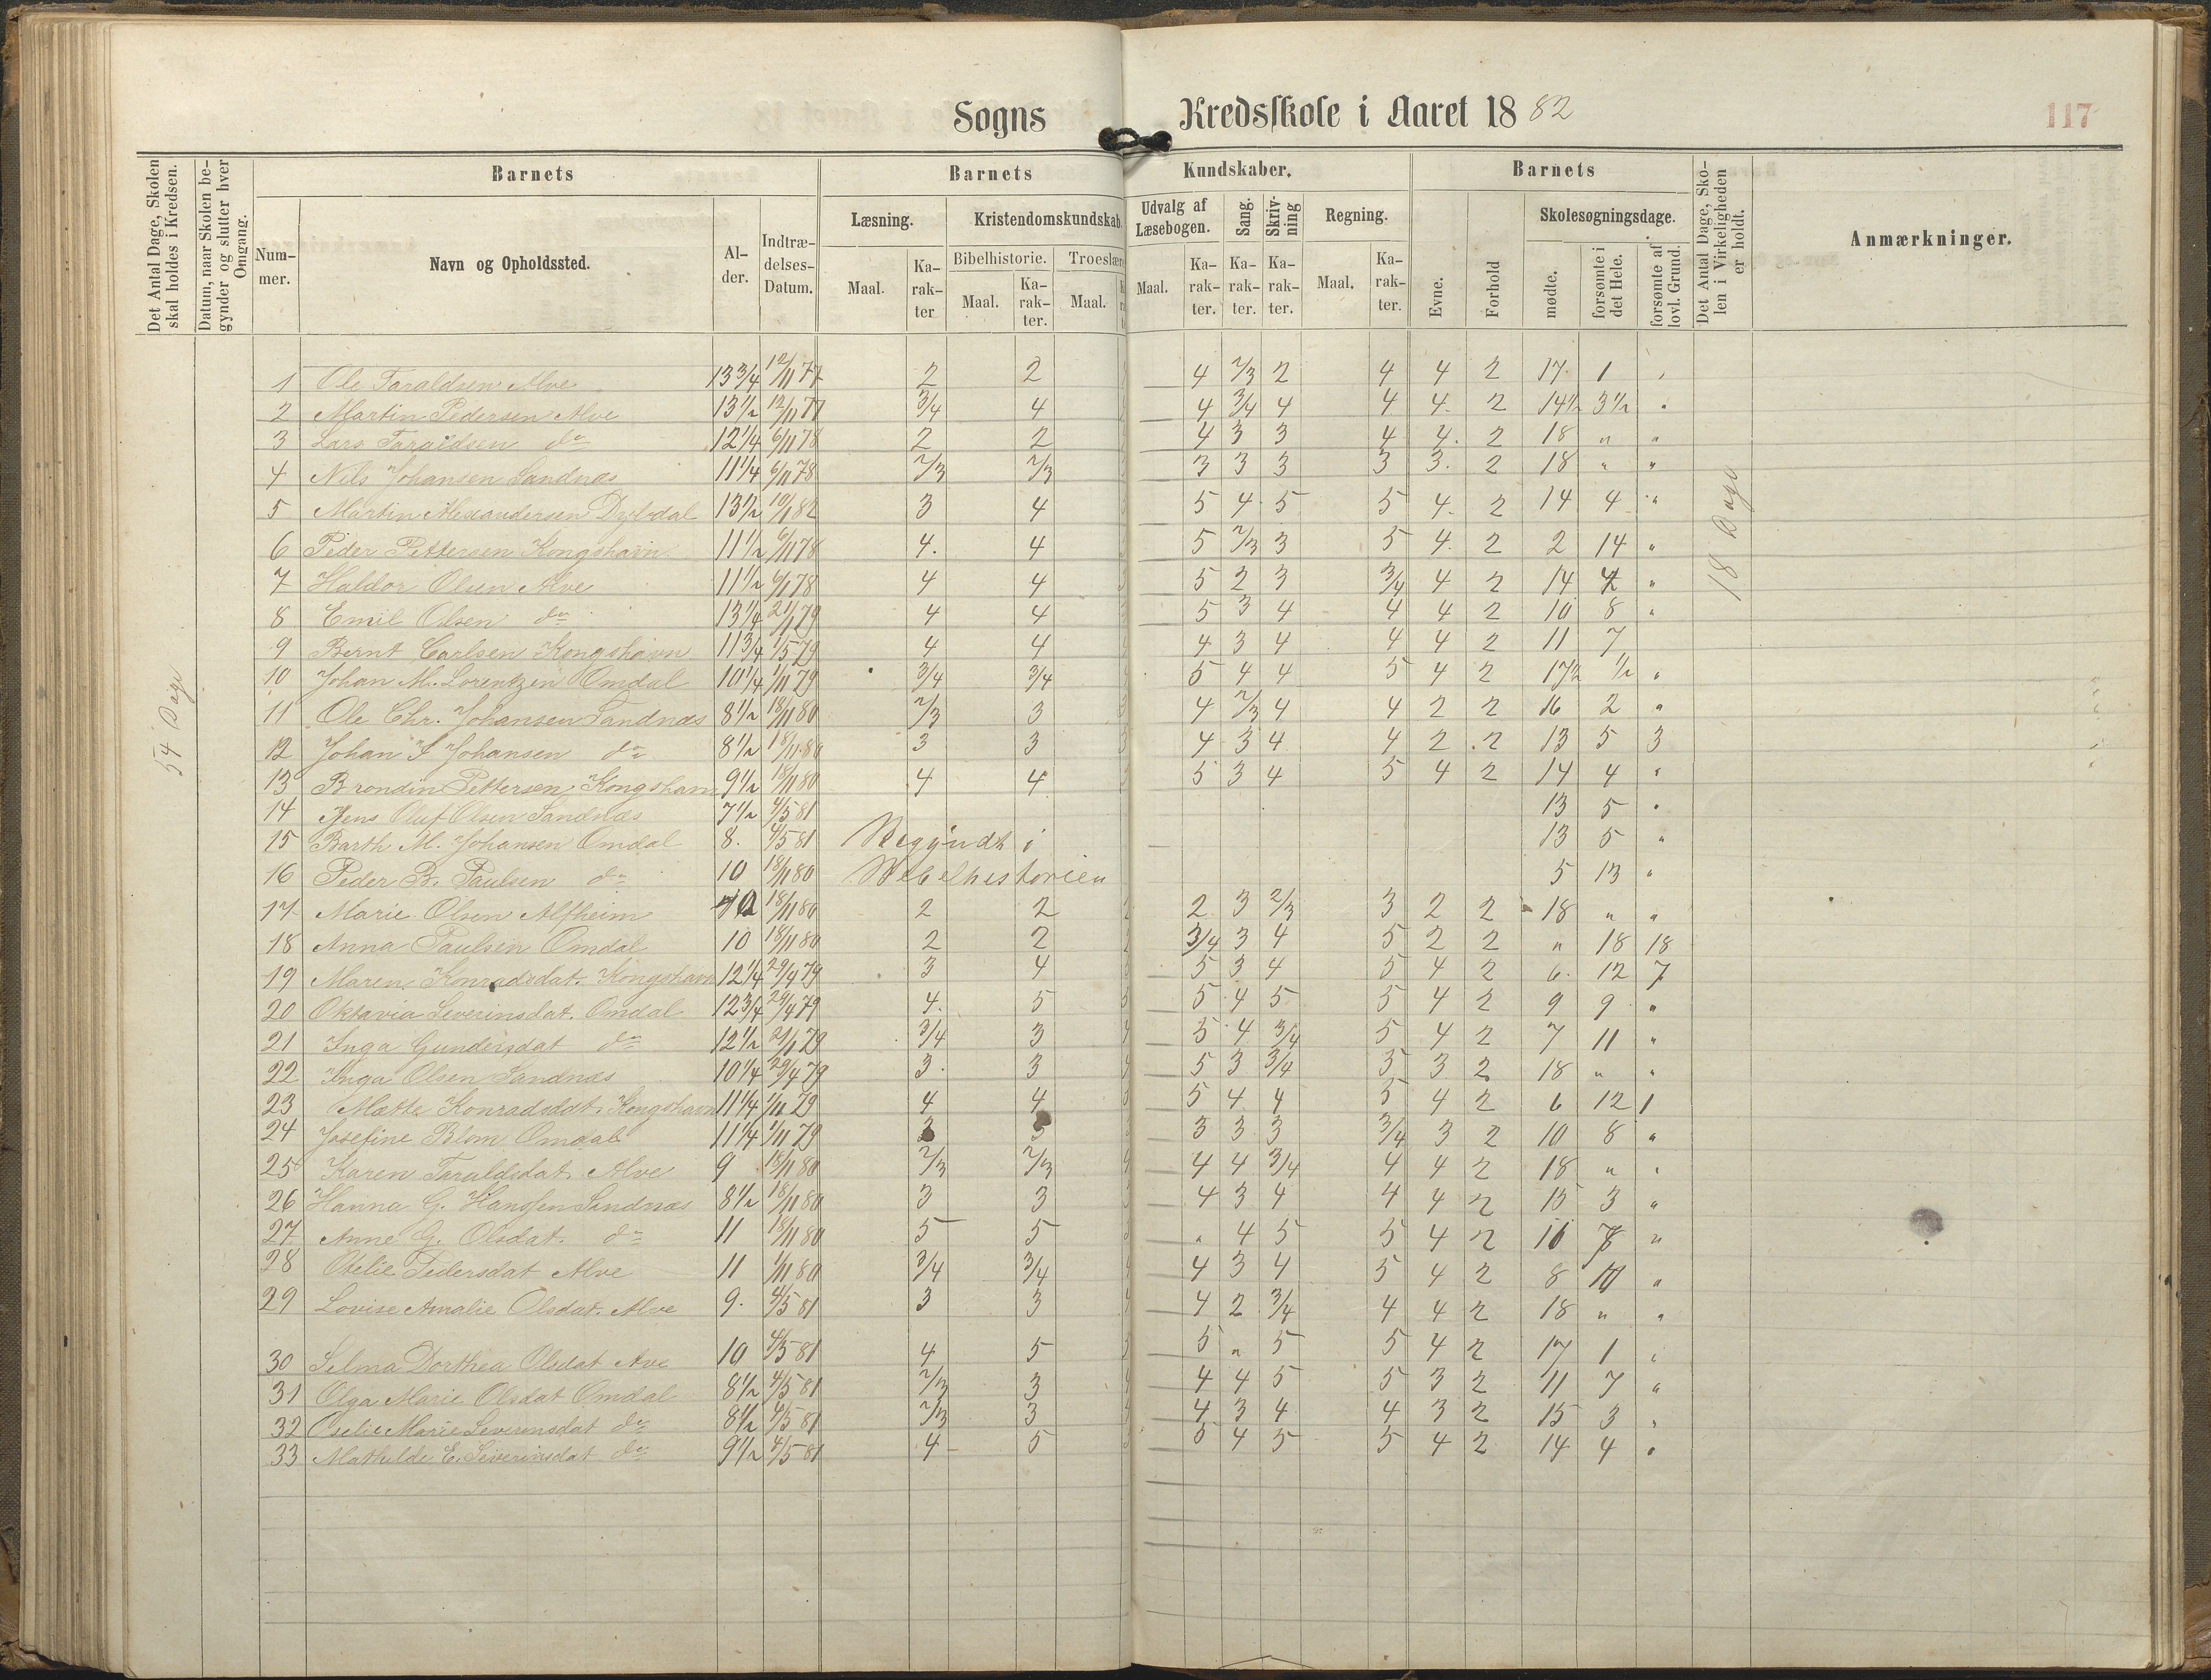 Sogns Kredsskole i Aaret 1882
117
Det Antal Dage, Skolen skal holdes i Kredsen.
Datum, naar Skolen begynder og slutter hver Omgang.
Barnets
Nummer.
Navn og Opholdssted.
Alder.
Indtrædelses-Datum.
Barnets Kundskaber.
Læsning.
Maal.
Karakter
Kristendomskundskab
Bibelhistorie.
Maal.
Karakter.
Troeslære
Maal.
Udvalg af Læsebogen.
Maal.
Karakter.
Sang.
Karakter.
Skrivning
Karakter.
Regning.
Maal.
Karakter.
Barnets
Evne.
Forhold
Skolesøgningsdage.
mødte.
forsømte i det Hele.
forsømte af lovl. Grund.
Det Antal Dage, Skolen i Virkeligheden er holdt.
Anmærkninger.
54 Dage
18 Dage
1 Ole Taraldsen Alve 13 3/4 12/11 77 2 2 4 2/3 2 4 4 2 17 1 "
2 Martin Pedersen Alve 13 1/2 12/11 77 3/4 4 4 3/4 4 4 4 2 14 1/2 3 1/2 "
3 Lars Taraldsen do 12 1/4 6/11 78 2 2 4 3 3 4 4 2 18 " "
4 Nils Johansen Sandnæs 11 1/4 6/11 78 2/3 2/3 3 3 3 3 3 2 18 " "
5 Martin Alexandersen Dybdal 13 1/2 10/1 82 3 4 5 4 5 5 4 2 14 4 "
6 Peder Pettersen Kongshavn 11 1/2 6/11 78 4 4 5 2/3 3 5 4 2 2 14 "
7 Haldor Olsen Alve 11 1/2 6/11 78 4 4 5 2 3 3/4 4 2 14 4 "
8 Emil Olsen do 13 1/4 21/1 79 4 4 5 3 4 4 4 2 10 8 "
9 Bernt Carlsen Kongshavn 11 3/4 1/5 79 4 4 4 3 4 4 4 2 11 7
10 Johan M. Lorentzen Omdal 10 1/4 1/11 79 3/4 3/4 5 4 4 5 4 2 17 1/2 1/2 "
11 Ole Chr. Johansen Sandnæs 8 1/2 18/11 80 2/3 3 4 2/3 4 4 2 2 16 2 "
12 Johan F Johansen do 8 1/2 18/11 80 3 3 4 3 4 4 2 2 13 5 3
13 Brondin Pettersen Kongshavn 9 1/2 18/11 80 4 4 5 3 4 5 4 2 14 4 "
14 Jens Oluf Olsen Sandnæs 7 1/2 4/5 81 13 5 "
15 Barth M. Johansen Omdal 8. 4/5 81 Begyndt i 13 5 "
16 Peder B. Paulsen do 10 18/11 80 Bibelhistorien 5 13 "
17 Marie Olsen Alfheim 10 18/11 80 2 2 2 3 2/3 3 2 2 18 " "
18 Anna Paulsen Omdal 10 18/11 80 2 2 3/4 3 4 5 2 2 " 18 18
19 Maren Konradsdat. Kongshavn 12 1/4 29/4 79 3 4 5 3 4 5 4 2 6 12 7
20 Oktavia Severinsdat. Omdal 12 3/4 29/4 79 4 5 5 4 5 5 4 2 9 9 "
21 Inga Gundersdat do 12 1/2 21/1 79 3/4 3 5 4 3/4 5 4 2 7 11 "
22 Inga Olsen Sandnæs 10 1/4 29/4 79 3 3 5 3 3/4 5 3 2 18 " "
23 Mætte Konradsdat. Kongshavn 11 1/4 1/11 79 4 4 5 4 4 5 4 2 6 12 1
24 Josefine Blom Omdal 11 1/4 1/11 79 3 3 3 3/4 3 2 10 8 "
25 Karen Taraldsdat. Alve 9 18/11 80 2/3 2/3 4 4 3/4 4 4 2 18 " "
26 Hanna G. Hansen Sandnæs 8 1/2 18/11 80 3 3 4 3 4 4 4 2 15 3 "
27 Anne G. Olsdat. do 11 18/11 80 5 5 " 4 5 5 4 2 "
28 Otelie Pedersdat Alve 11 1/11 80 3/4 3/4 4 3 4 5 4 2 8 10 "
29 Lovise Amalie Olsdat. Alve 9. 4/5 81 3 3 4 2 3/4 4 4 2 18 " "
30 Selma Dorthea Olsdat Ave 10 4/5 81 4 5 5 " 5 5 4 2 17 1 "
31 Olga Marie Olsdat Omdal 8 1/2 4/5 81 2/3 3 4 4 5 5 3 2 11 7 "
32 Marie Severinsdat do 8 1/2 4/5 81 2/3 3 4 3 4 4 3 2 15 3 "
33 Mathilde E. Severinsdat do 9 1/2 4/5 81 4 5 5 4 5 5 4 2 14 4 "